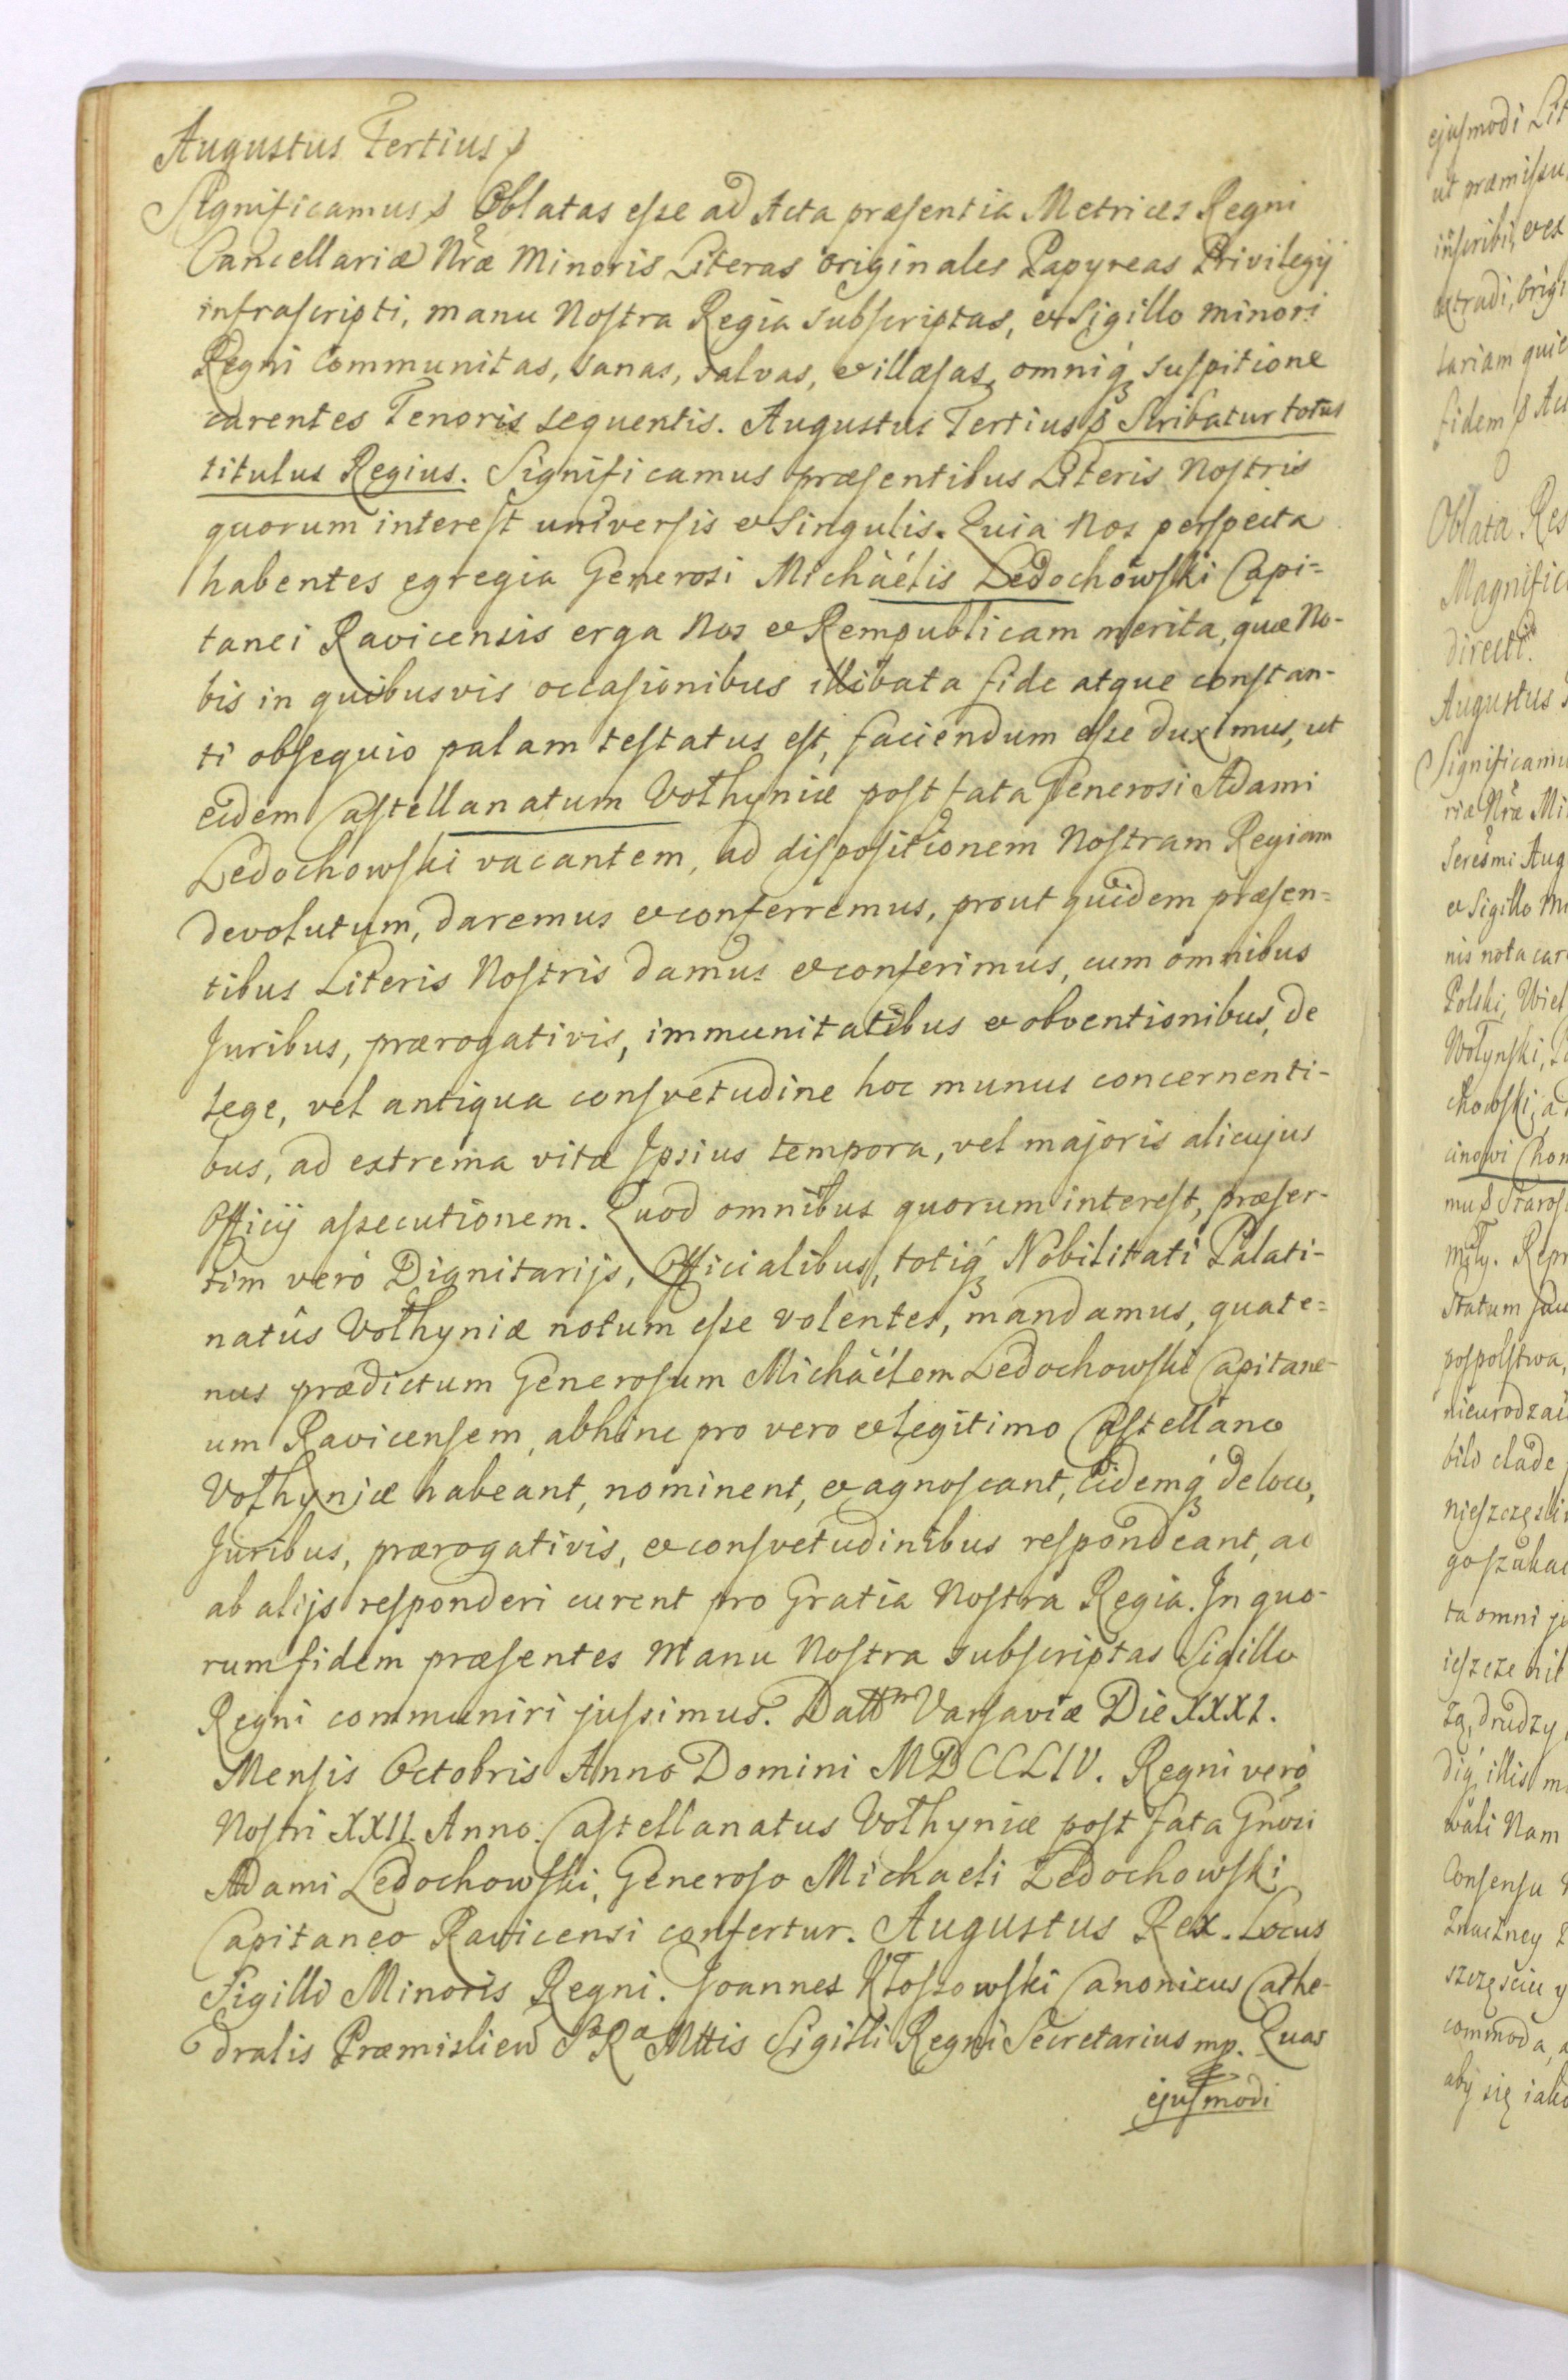 Augustus Tertius
Significamus Oblatas eſse ad Acta præſentia Metrices Regni
Cancellariæ Nræ Minoris Literas originales Papyreas Privilegij
infraſcripti, manu Noſtra Regia subſcriptas, et Sigillo minori
Regni Communitas, sanas, salvas, et illæſas, omniq́ꝫ suſpitione
carentes Tenoris sequentis. Augustus Tertius Scribatur totus
titulus Regius. Significamus præſentibus Literis Noſtris
quorum intereſt univerſis et Singulis. Quia Nos perſpecta
habentes egregia Generosi Michäélis Ledochowſki Capi=
tanei Ravicensis erga Nos et Rempublicam merita, quæ No-
bis in quibusvis occaſionibus illibata fide atque conſtan-
ti obſequio palam teſtatus eſt, faciendum eſse duximus, ut
eidem Caſtellanatum Volhyniæ poſt fata Generosi Adami
Ledochowſki vacantem, ad diſpoſitionem Noſtram Regiam
devolutum, daremus et conferremus, prout quidem præſen=
tibus Literis Noſtris damus et conferimus, cum omnibus
Juribus, prærogativis, immunitatibus et obventionibus, de
lege, vel antiqua conſvetudine hoc munus concernenti-
bus, ad extrema vitæ Ipsius tempora, vel majoris alicujus
Officij aſsecutionem. Quod omnibus quorum intereſt, præſer-
tim veró Dignitarijs, Officialibus, totiq́ꝫ Nobilitati Palati-
natûs Volhyniæ notum eſse volentes, mandamus, quate=
nus prædictum Generoſum Michäélem Ledochowſki Capitane-
um Ravicenſem, abhinc pro vero et legitimo Caſtellano
Volhyniæ habeant, nominent, et agnoſcant, Eidemq́ꝫ de loco,
Juribus, prærogativis, et conſvetudinibus reſpondeant, ac
ab alijs reſponderi curent pro Gratia Noſtra Regia. In quo-
rum fidem præſentes Manu Noſtra subſcriptas Sigillo
Regni communiri juſsimus. Datt͞m Varſaviæ Die XXXI.
Menſis Octobris Anno Domini MDCCLIV. Regni veró
Noſtri XXII. Anno. Caſtellanatus Volhyniæ poſt fata Gnosi
Adami Ledochowſki, Generoſo Michaeli Ledochowſki
Capitaneo Ravicensi confertur. Augustus Rex. Locus
Sigilli Minoris Regni. Joannes Kłoſsowſki Canonicus Cathe-
dralis Præmislien S R Mttis Sigilli Regni Secretarius mp. Quas
ejuſmodi
ejuſmodi Lit
ut præmiſsu
inſcribi, et ex
extradi, Origi
tariam quie
fidem Act
Oblata Res
Magnific
directi.
Augustus
Significamu
riæ Nræ Mi
Sereſmi Aug
et Sigillo Mi
nis nota car
Polski, Wiel
Wołynſki,
chowſki, a
cinowi Chom
mu Staroſ
Repr
Statum
poſpolſtwa,
nieurodzai
bilo clade
nieſzczęſli
go ſzukac
ta omni
ieſzcze nit
drudzy,
illis m
wali Nam
Conſenſu
znaczney
szczęsciu y
commoda,
aby się iako